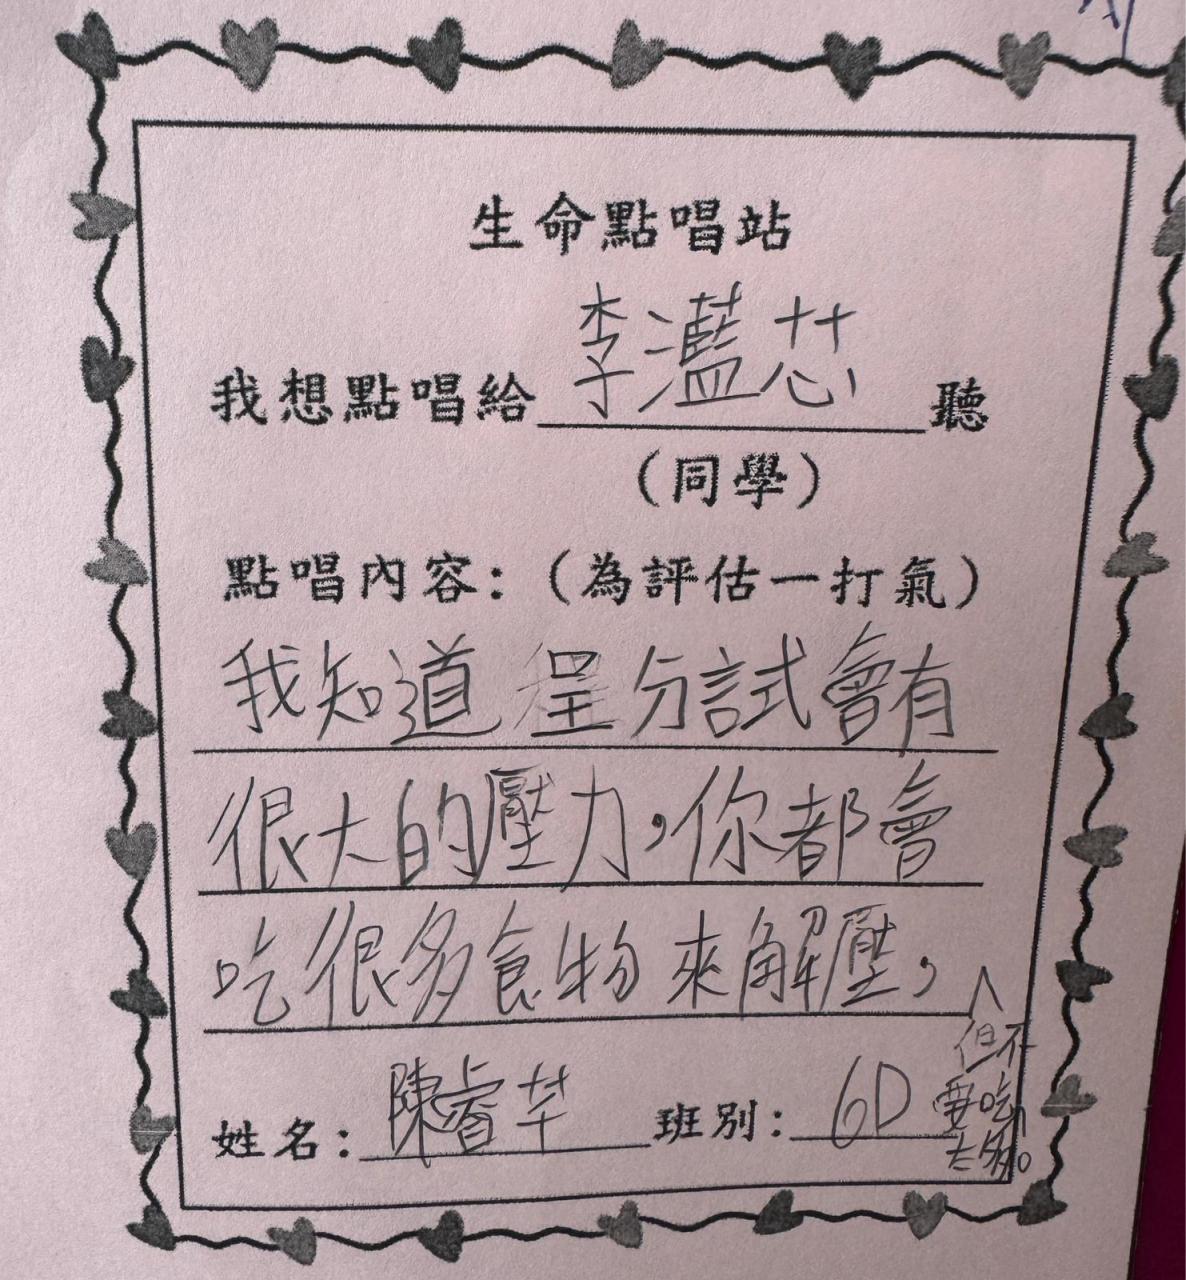 生命點唱站
我想點唱給李灩芯聽
(同學)
點唱內容:(為評估一打氣)
我知道呈分試會有
很大的壓力,你都會
吃很多食物來解壓,
但不
要吃
太多。
姓名:陳睿芊 班別:6D